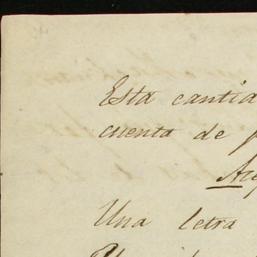 Esta cantid
cuenta de p
Una letra